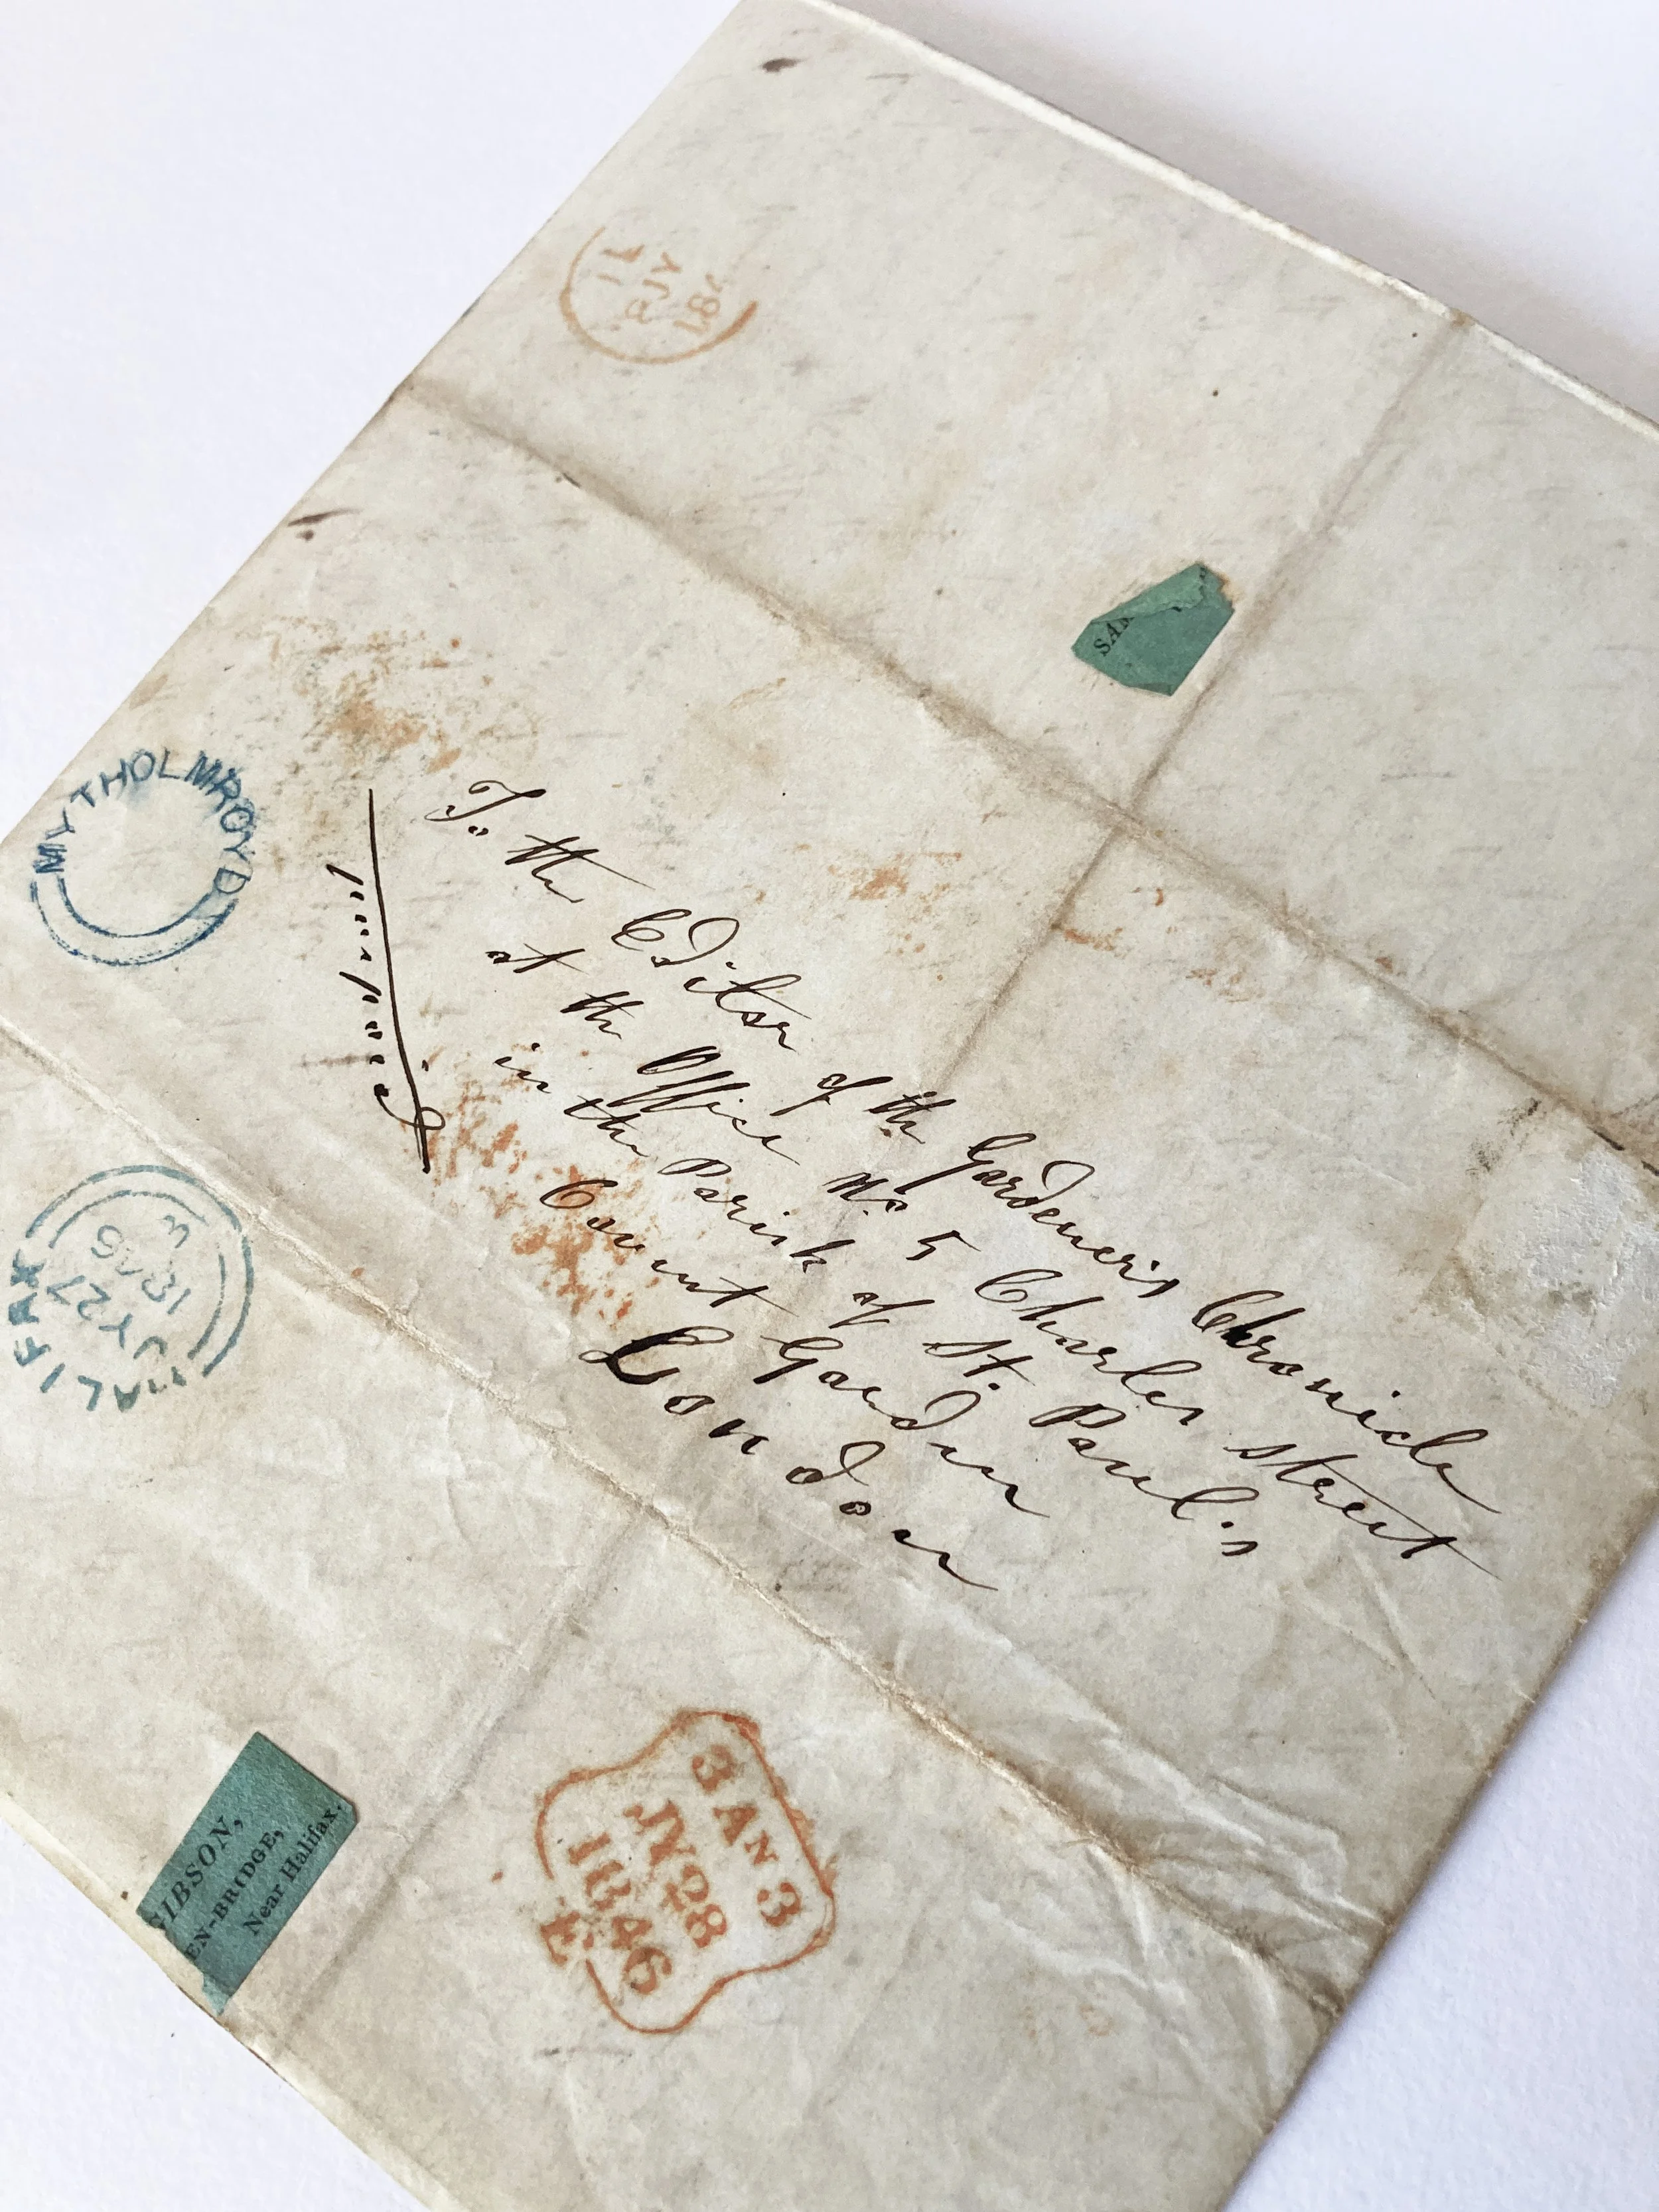 1L
JY
184
SA
MYTHOLMROYD
To the Editor of the Gardener's Chronicle
at the Office No 5 Charles Street
in the Parish of St. Paul's
Covent Garden
London
HALIFAX
JY 27
1846
3 AN 3
JY 28
1846
E
GIBSON,
EN-BRIDGE,
Near Halifax.